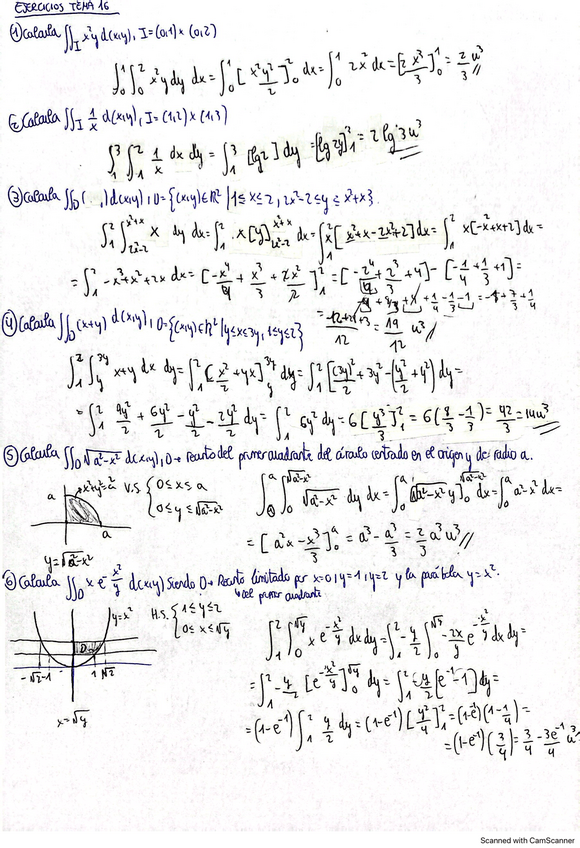 EJERCICIOS TEMA 16
① Calcula ∬_I x²y d(x,y), I=(0,1)×(0,2)
∫₀¹∫₀² x²y dy dx = ∫₀¹ [x²y²/2]₀² dx = ∫₀¹ 2x² dx = [2x³/3]₀¹ = 2/3 u³
② Calcula ∬_I 1/x d(x,y), I=(1,2)×(1,3)
∫₁³∫₁² 1/x dx dy = ∫₁³ [lg2] dy = [lg2y]₁³ = 2 lg 3 u³
③ Calcula ∬_D ( , ) d(x,y), D={(x,y)∈ℝ² | 1≤x≤2, 2x²-2≤y≤x²+x}.
∫₁²∫_{2x²-2}^{x²+x} x dy dx = ∫₁² x[y]_{2x²-2}^{x²+x} dx = ∫₁² x[x²+x-2x²+2] dx = ∫₁² x[-x²+x+2] dx =
= ∫₁² -x³+x²+2x dx = [-x⁴/4 + x³/3 + 2x²/2]₁² = [-2⁴/4 + 2³/3 + 4] - [-1/4 + 1/3 + 1] =
④ Calcula ∬_D (x+y) d(x,y), D={(x,y)∈ℝ² | y≤x≤3y, 1≤y≤2}
19/12 u³
∫₁²∫_y^{3y} x+y dx dy = ∫₁² [x²/2 + yx]_y^{3y} dy = ∫₁² [(3y)²/2 + 3y² - (y²/2 + y²)] dy =
= ∫₁² 9y²/2 + 6y²/2 - y²/2 - 2y²/2 dy = ∫₁² 6y² dy = 6[y³/3]₁² = 6(8/3 - 1/3) = 42/3 = 14u³
⑤ Calcula ∬_D √(a²-x²) d(x,y), D→ Recinto del primer cuadrante del círculo centrado en el origen y de radio a.
a
x²+y²=a²
V.S { 0≤x≤a
0≤y≤√(a²-x²)
∫₀ᵃ∫₀^{√(a²-x²)} √(a²-x²) dy dx = ∫₀ᵃ [√(a²-x²) y]₀^{√(a²-x²)} dx = ∫₀ᵃ a²-x² dx =
a
= [a²x - x³/3]₀ᵃ = a³ - a³/3 = 2/3 a³ u³
y=√(a²-x²)
⑥ Calcula ∬_D x e^{-x²/y} d(x,y) siendo D→ Recinto limitado por x=0, y=1, y=2 y la parábola y=x².
↳ del primer cuadrante
y=x²
H.S. { 1≤y≤2
0≤x≤√y
D
-√2 -1 1 √2
x=√y
∫₁²∫₀^{√y} x e^{-x²/y} dx dy = ∫₁² -y/2 ∫₀^{√y} -2x/y e^{-x²/y} dx dy =
= ∫₁² -y/2 [e^{-x²/y}]₀^{√y} dy = ∫₁² -y/2 [e⁻¹-1] dy =
= (1-e⁻¹) ∫₁² y/2 dy = (1-e⁻¹) [y²/4]₁² = (1-e⁻¹)(1-1/4) =
= (1-e⁻¹)(3/4) = 3/4 - 3e⁻¹/4 u³
Scanned with CamScanner